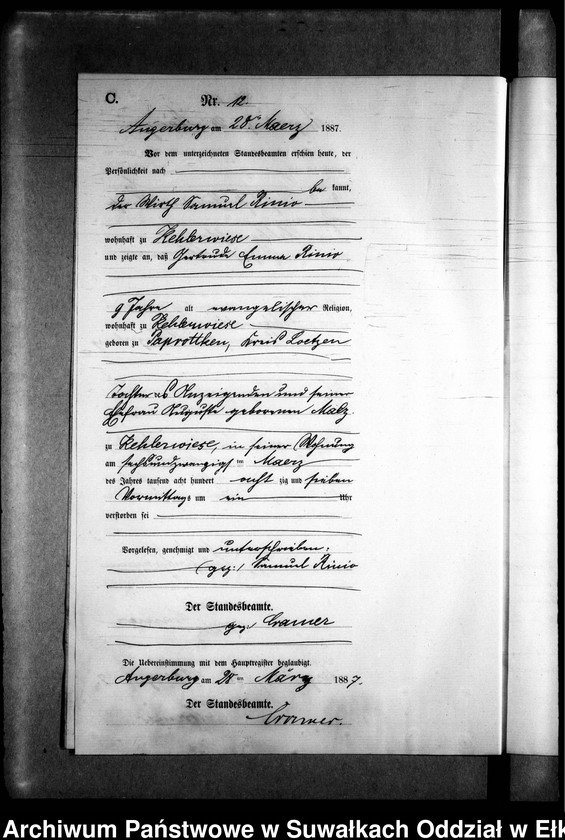 C.
Nr. 12.
Angerburg am 28ten Maerz 1887.
Vor dem unterzeichneten Standesbeamten erschien heute, der
Persönlichkeit nach
be kannt,
der Wirth Samuel Rinio
wohnhaft zu Kehlerwiese
und zeigte an, daß Gertrude Emma Rinio
9 Jahre alt evangelischer Religion,
wohnhaft zu Kehlerwiese
geboren zu Paprottken, Kreis Loetzen
Tochter des Anzeigenden und seiner
Ehefrau Auguste geborenen Malz.
zu Kehlerwiese, in seiner Wohnung
am sechsundzwanzigsten Maerz
des Jahres tausend acht hundert acht zig und sieben
Vormittags um ein Uhr
verstorben sei
Vorgelesen, genehmigt und unterschrieben:
(gez:) Samuel Rinio
Der Standesbeamte.
gez: Cramer
Die Uebereinstimmung mit dem Hauptregister beglaubigt.
Angerburg am 28ten März 1887.
Der Standesbeamte.
Cramer.
Archiwum Państwowe w Suwałkach Oddział w Ełk